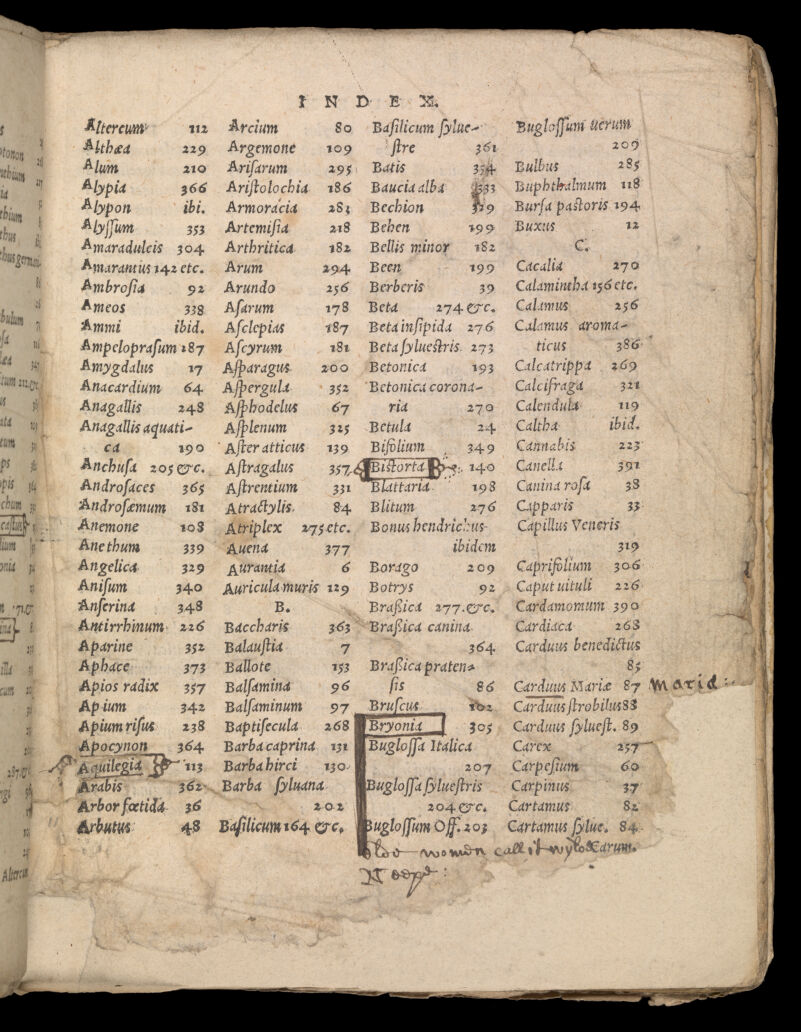 INDEX.
Altercum 112
Althæa 229
Alum 210
Alypia 366
Alypon ibi.
Alyſſum 353
Amaradulcis 304
Amarantus 142 etc.
Ambroſia 92
Ameos 338
Ammi ibid.
Ampelopraſum 187
Amygdalus 17
Anacardium 64
Anagallis 248
Anagallis aquati-
ca 190
Anchuſa 205 &c.
Androſaces 365
Androſæmum 181
Anemone 108
Anethum 339
Angelica 329
Aniſum 340
Anſerina 348
Antirrhinum 226
Aparine 352
Aphace 373
Apios radix 357
Apium 342
Apium riſus 238
Apocynon 364
Aquilegia 113
Arabis 362
Arbor fœtida 36
Arbutus 48
Arcium 80
Argemone 109
Ariſarum 295
Ariſtolochia 186
Armoracia
Artemiſia 218
Arthritica 182
Arum 294
Arundo 256
Aſarum 178
Aſclepias 187
Aſcyrum 181
Aſparagus 200
Aſpergula 352
Aſphodelus 67
Aſplenum 325
Aſter atticus 139
Aſtragalus 357
Aſtrentium 331
Atractylis 84
Atriplex 275 etc.
Auena 377
Aurantia 6
Auricula muris 129
B.
Baccharis 363
Balauſtia 7
Ballote 153
Balſamina 96
Balſaminum 97
Baptiſecula 268
Barba caprina 131
Barba hirci 130
Barba ſyluana
202
Baſilicum 164 &c.
Baſilicum ſylue-
ſtre 361
Batis 354
Baucia alba 333
Bechion
Behen 199
Bellis minor 182
Been 199
Berberis 39
Beta 274 &c.
Beta inſipida 276
Beta ſylueſtris 273
Betonica 193
Betonica corona-
ria 270
Betula 24
Bifolium 349
Biſtorta 140
Blattaria 198
Blitum 276
Bonus hendrichus
ibidem
Borago 209
Botrys 92
Braßica 277. &c.
Braßica canina
364
Braßica praten-
ſis 86
Bruſcus 102
Bryonia 305
Bugloſſa Italica
207
Bugloſſa ſylueſtris
204 &c.
Bugloſſum Off. 203
Bugloſſum uerum
209
Bulbus 285
Buphthalmum 118
Burſa paſtoris 194
Buxus 12
C.
Cacalia 270
Calamintha 156 etc.
Calamus 256
Calamus aroma-
ticus 386
Calcatrippa 269
Calcifraga 321
Calendula 119
Caltha ibid.
Cannabis 223
Canella 391
Canina roſa 38
Capparis 33
Capillus Veneris
319
Caprifolium 306
Caput uituli 226
Cardamomum 390
Cardiaca 268
Carduus benedictus
85
Carduus Mariæ 87 Maria:
Carduus ſtrobilus 88
Carduus ſylueſt. 89
Carex 257
Carpeſium 60
Carpinus 37
Cartamus 82
Cartamus ſylue. 84
Carum.
women call it wylde
Neepe: